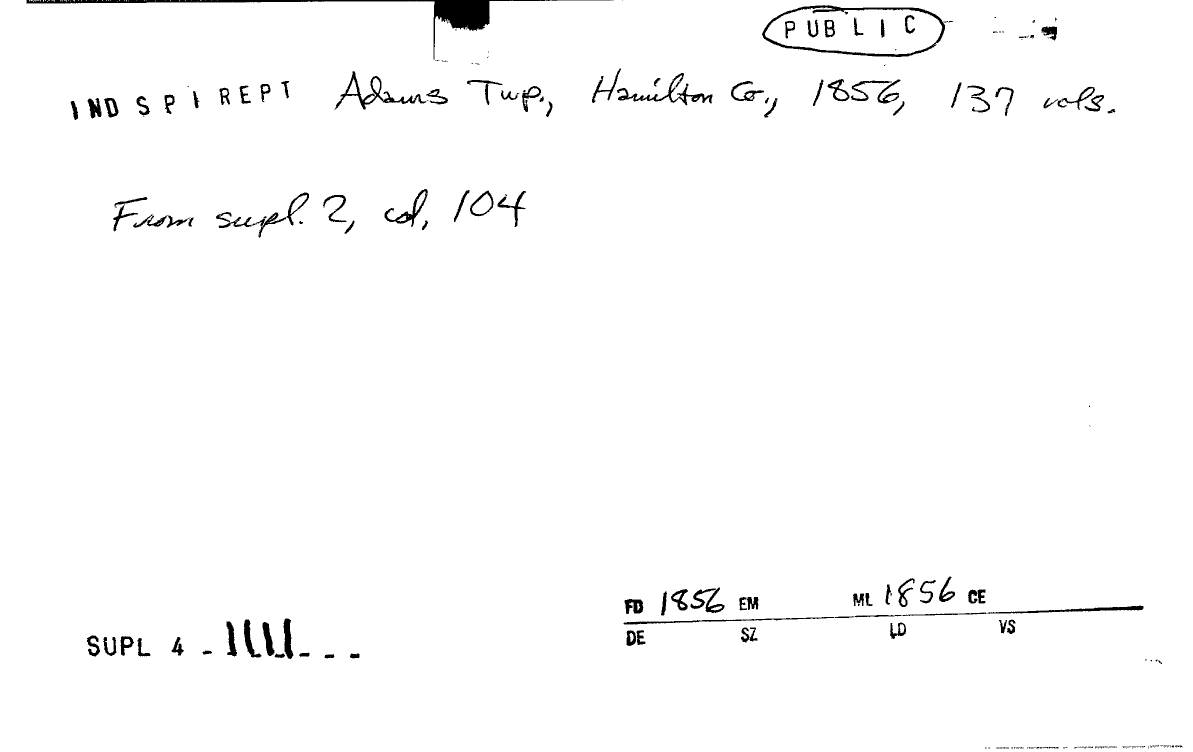 PUBLIC
INDSPIREPT Adams Twp., Hamilton Co., 1856, 137 vols.
From supl. 2, col, 104
FD 1856 EM ML 1856 CE
DE SZ LD VS
SUPL 4 -